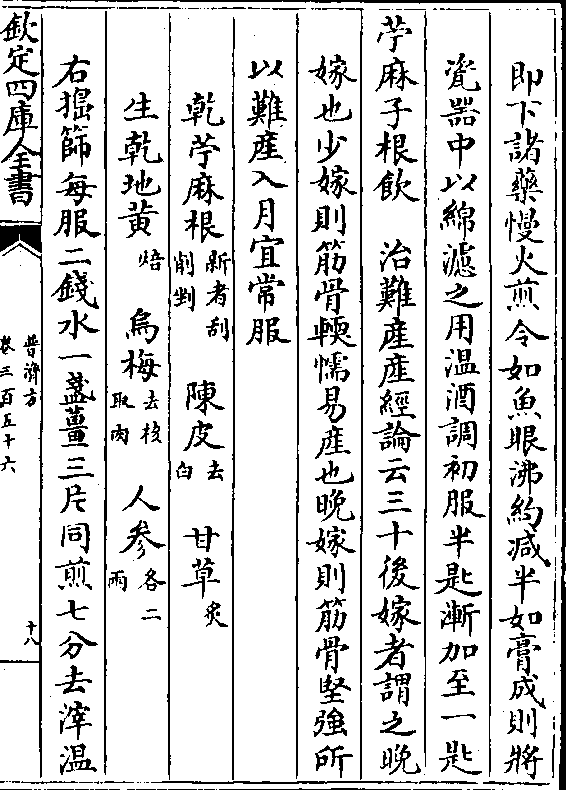 即下諸藥慢火煎令如魚眼沸約減半如膏成則將
瓷器中以綿濾之用温酒調初服半匙漸加至一匙
苧麻子根飲　治難産産經論云三十後嫁者謂之晚
嫁也少嫁則筋骨輭懦易産也晚嫁則筋骨堅強所
以難産入月宜常服
乾苧麻根新者刮削剉　陳皮去白　甘草炙
生乾地黄焙　烏梅去核取肉　人參各二兩
右搗篩每服二錢水一盞薑三片同煎七分去滓温
欽定四庫全書
普濟方
卷三百五十六
十八